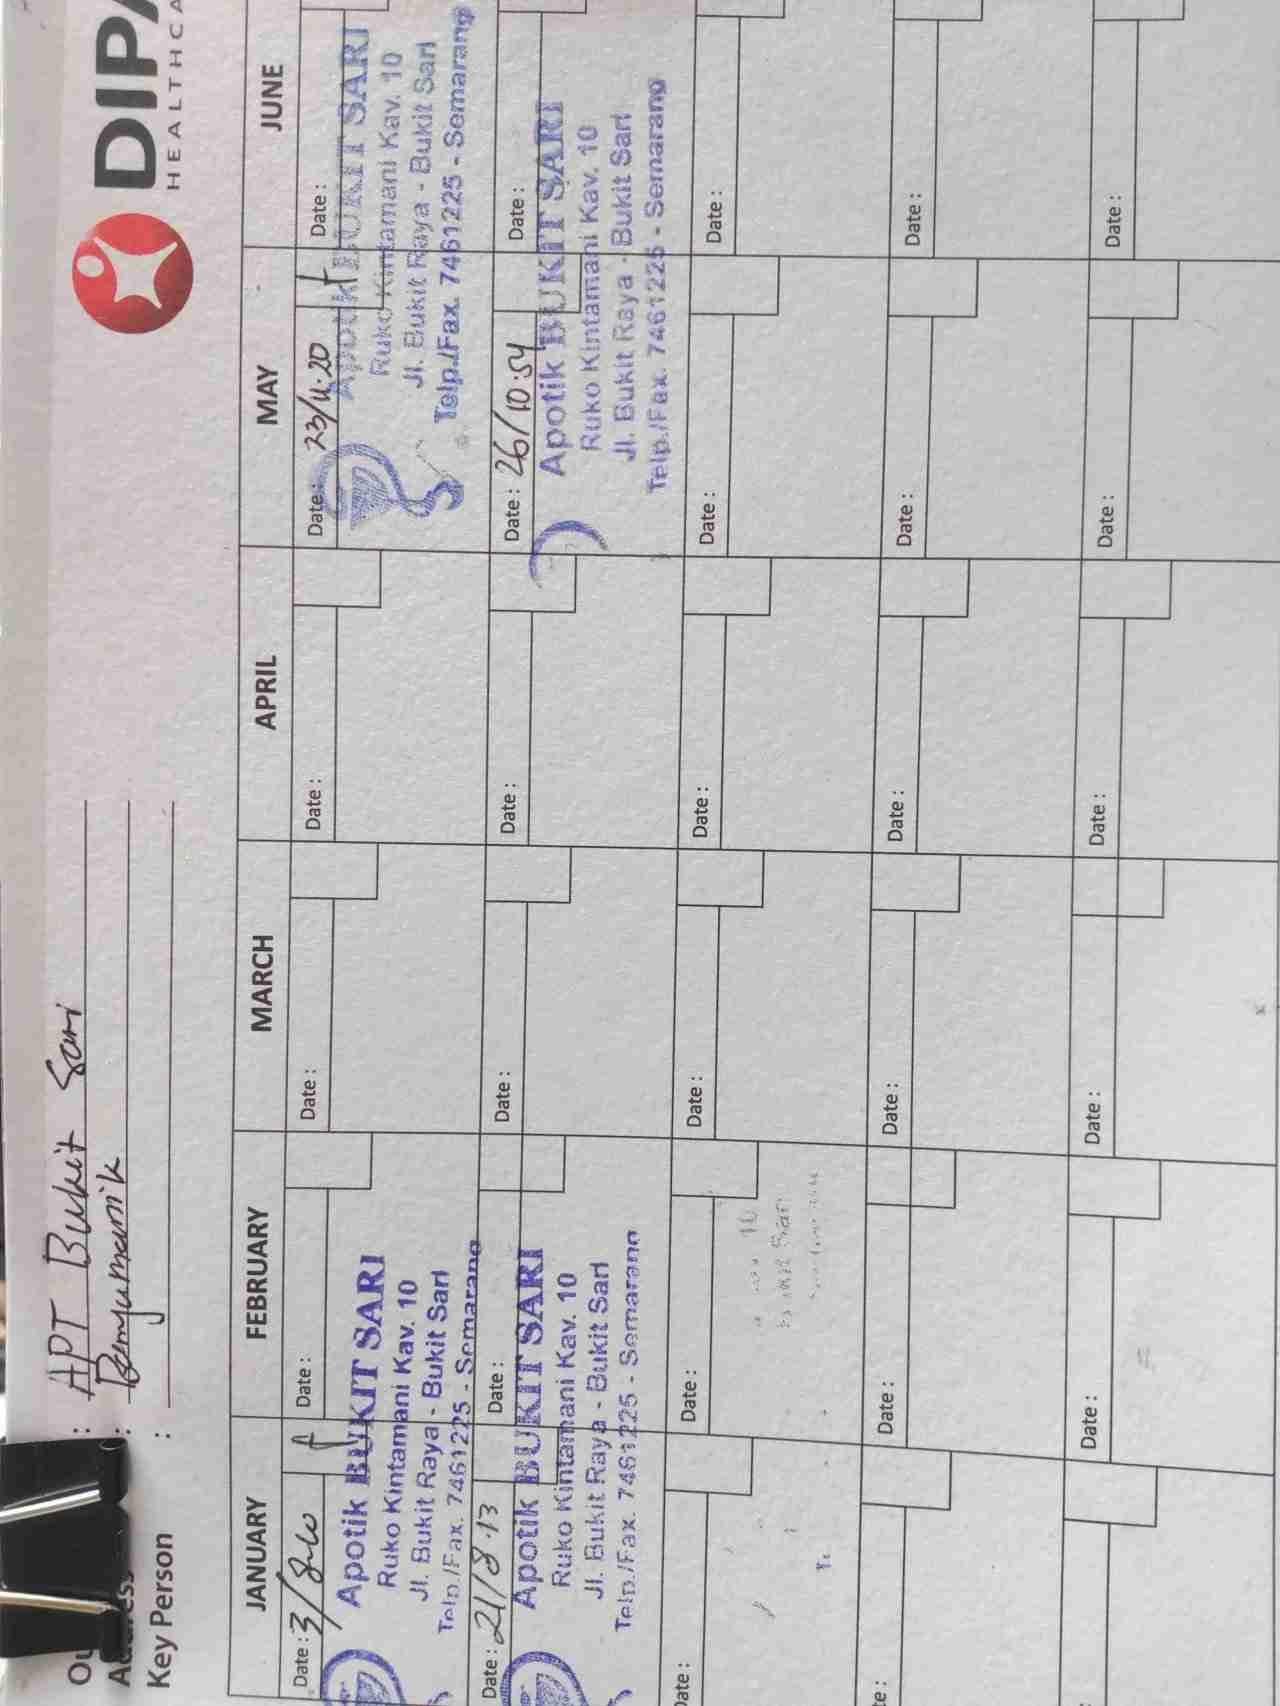 DIPA
HEALTHCA
: APT Bukit Sari
: Banyumanik
Key Person :
JANUARY FEBRUARY MARCH APRIL MAY JUNE
Date : 3/ Date : Date : Date : Date : 23/11.20 Date :
Apotik BUKIT SARI
Ruko Kintamani Kav. 10
Jl. Bukit Raya - Bukit Sari
Telp./Fax. 7461225 - Semarang
Apotik BUKIT SARI
Ruko Kintamani Kav. 10
Jl. Bukit Raya - Bukit Sari
Telp./Fax. 7461225 - Semarang
Date : 21/8.13 Date : Date : Date : Date : 26/10:54 Date :
Apotik BUKIT SARI
Ruko Kintamani Kav. 10
Jl. Bukit Raya - Bukit Sari
Telp./Fax. 7461225 - Semarang
Apotik BUKIT SARI
Ruko Kintamani Kav. 10
Jl. Bukit Raya - Bukit Sari
Telp./Fax. 7461225 - Semarang
Date : Date : Date : Date : Date : Date :
te : Date : Date : Date : Date : Date :
Date : Date : Date : Date : Date :